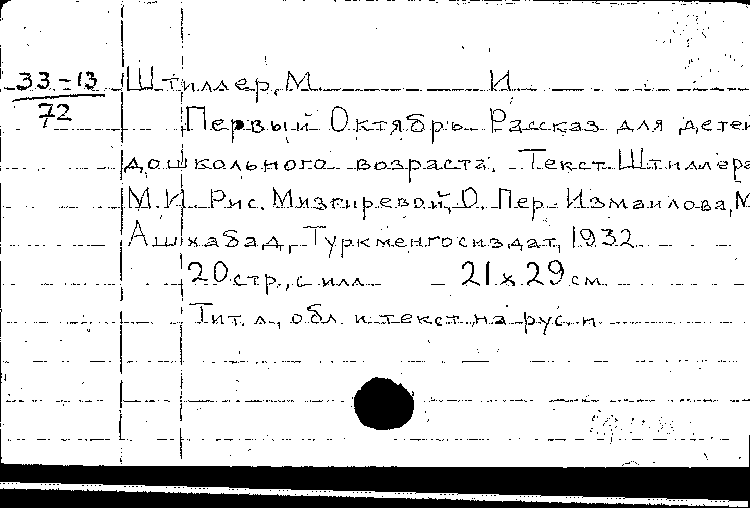 33-13
72
Штиллер, М. И.
Первый Октябрь. Рассказ для детей
дошкольного возраста. Текст Штиллера
М.И. Рис. Мизгиревой, О. Пер. Измаилова, М
Ашхабад, Туркменгосиздат, 1932
20 стр., с илл 21 x 29 см
Тит. л., обл. и текст на рус. п.